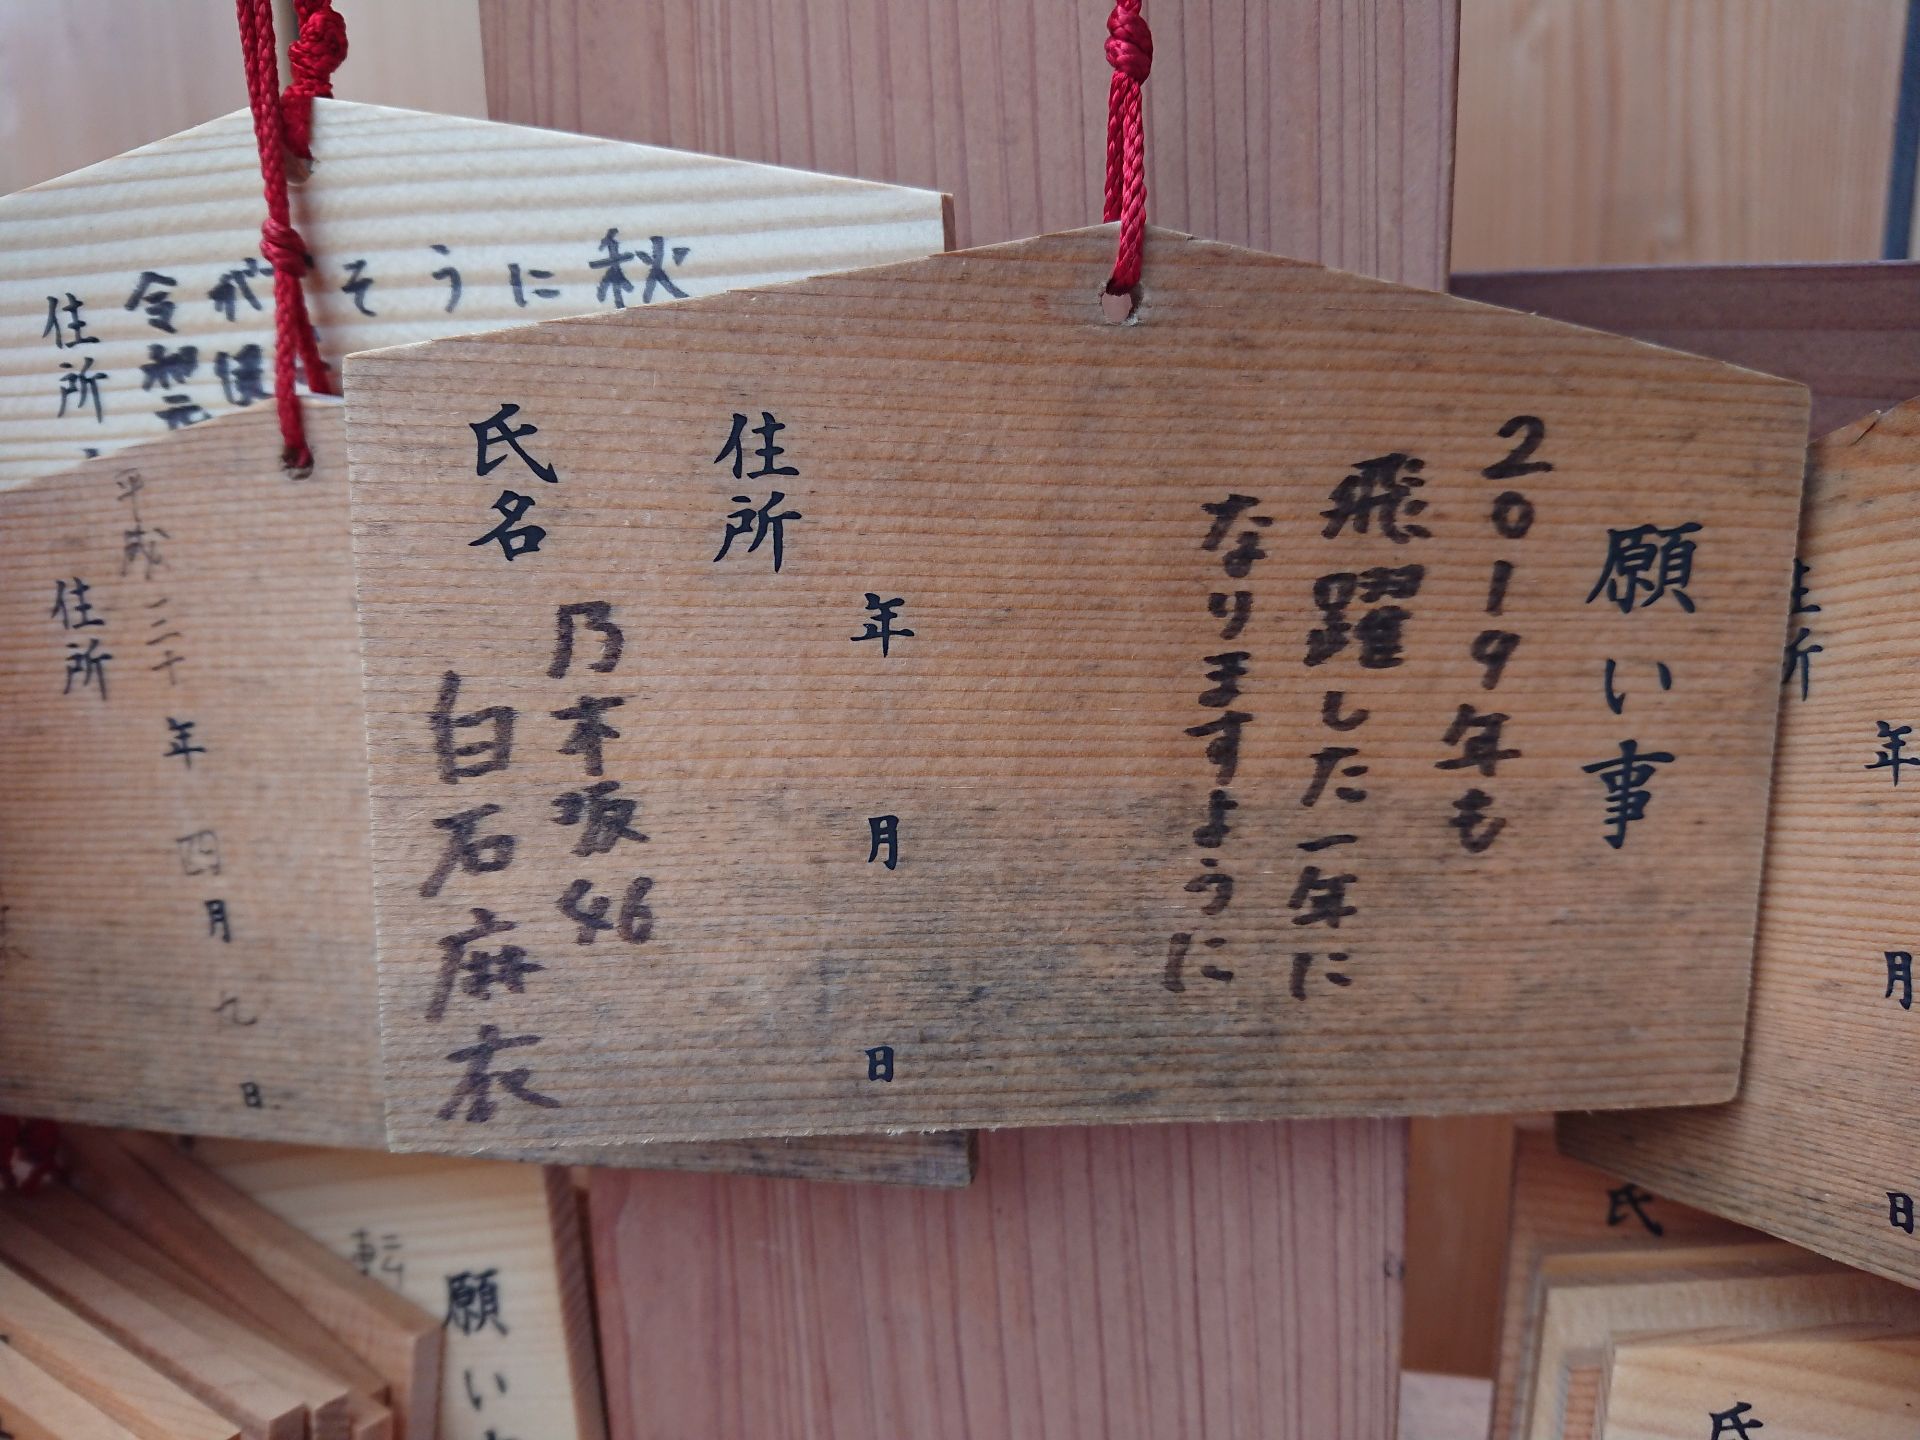 願い事
2019年も
飛躍した一年に
なりますように
年 月 日
住所
氏名
乃木坂46
白石麻衣
秋
に
う
そ
令和元
住所
平成二十年四月九日
住所
年 月 日
願い
転
氏
氏